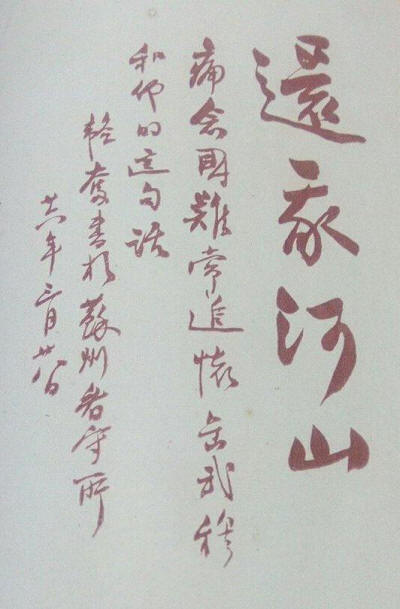 還我河山
痛念國難常追懷岳武穆
和他的這句話
韜奮書於蘇州看守所
廿六年三月廿八日